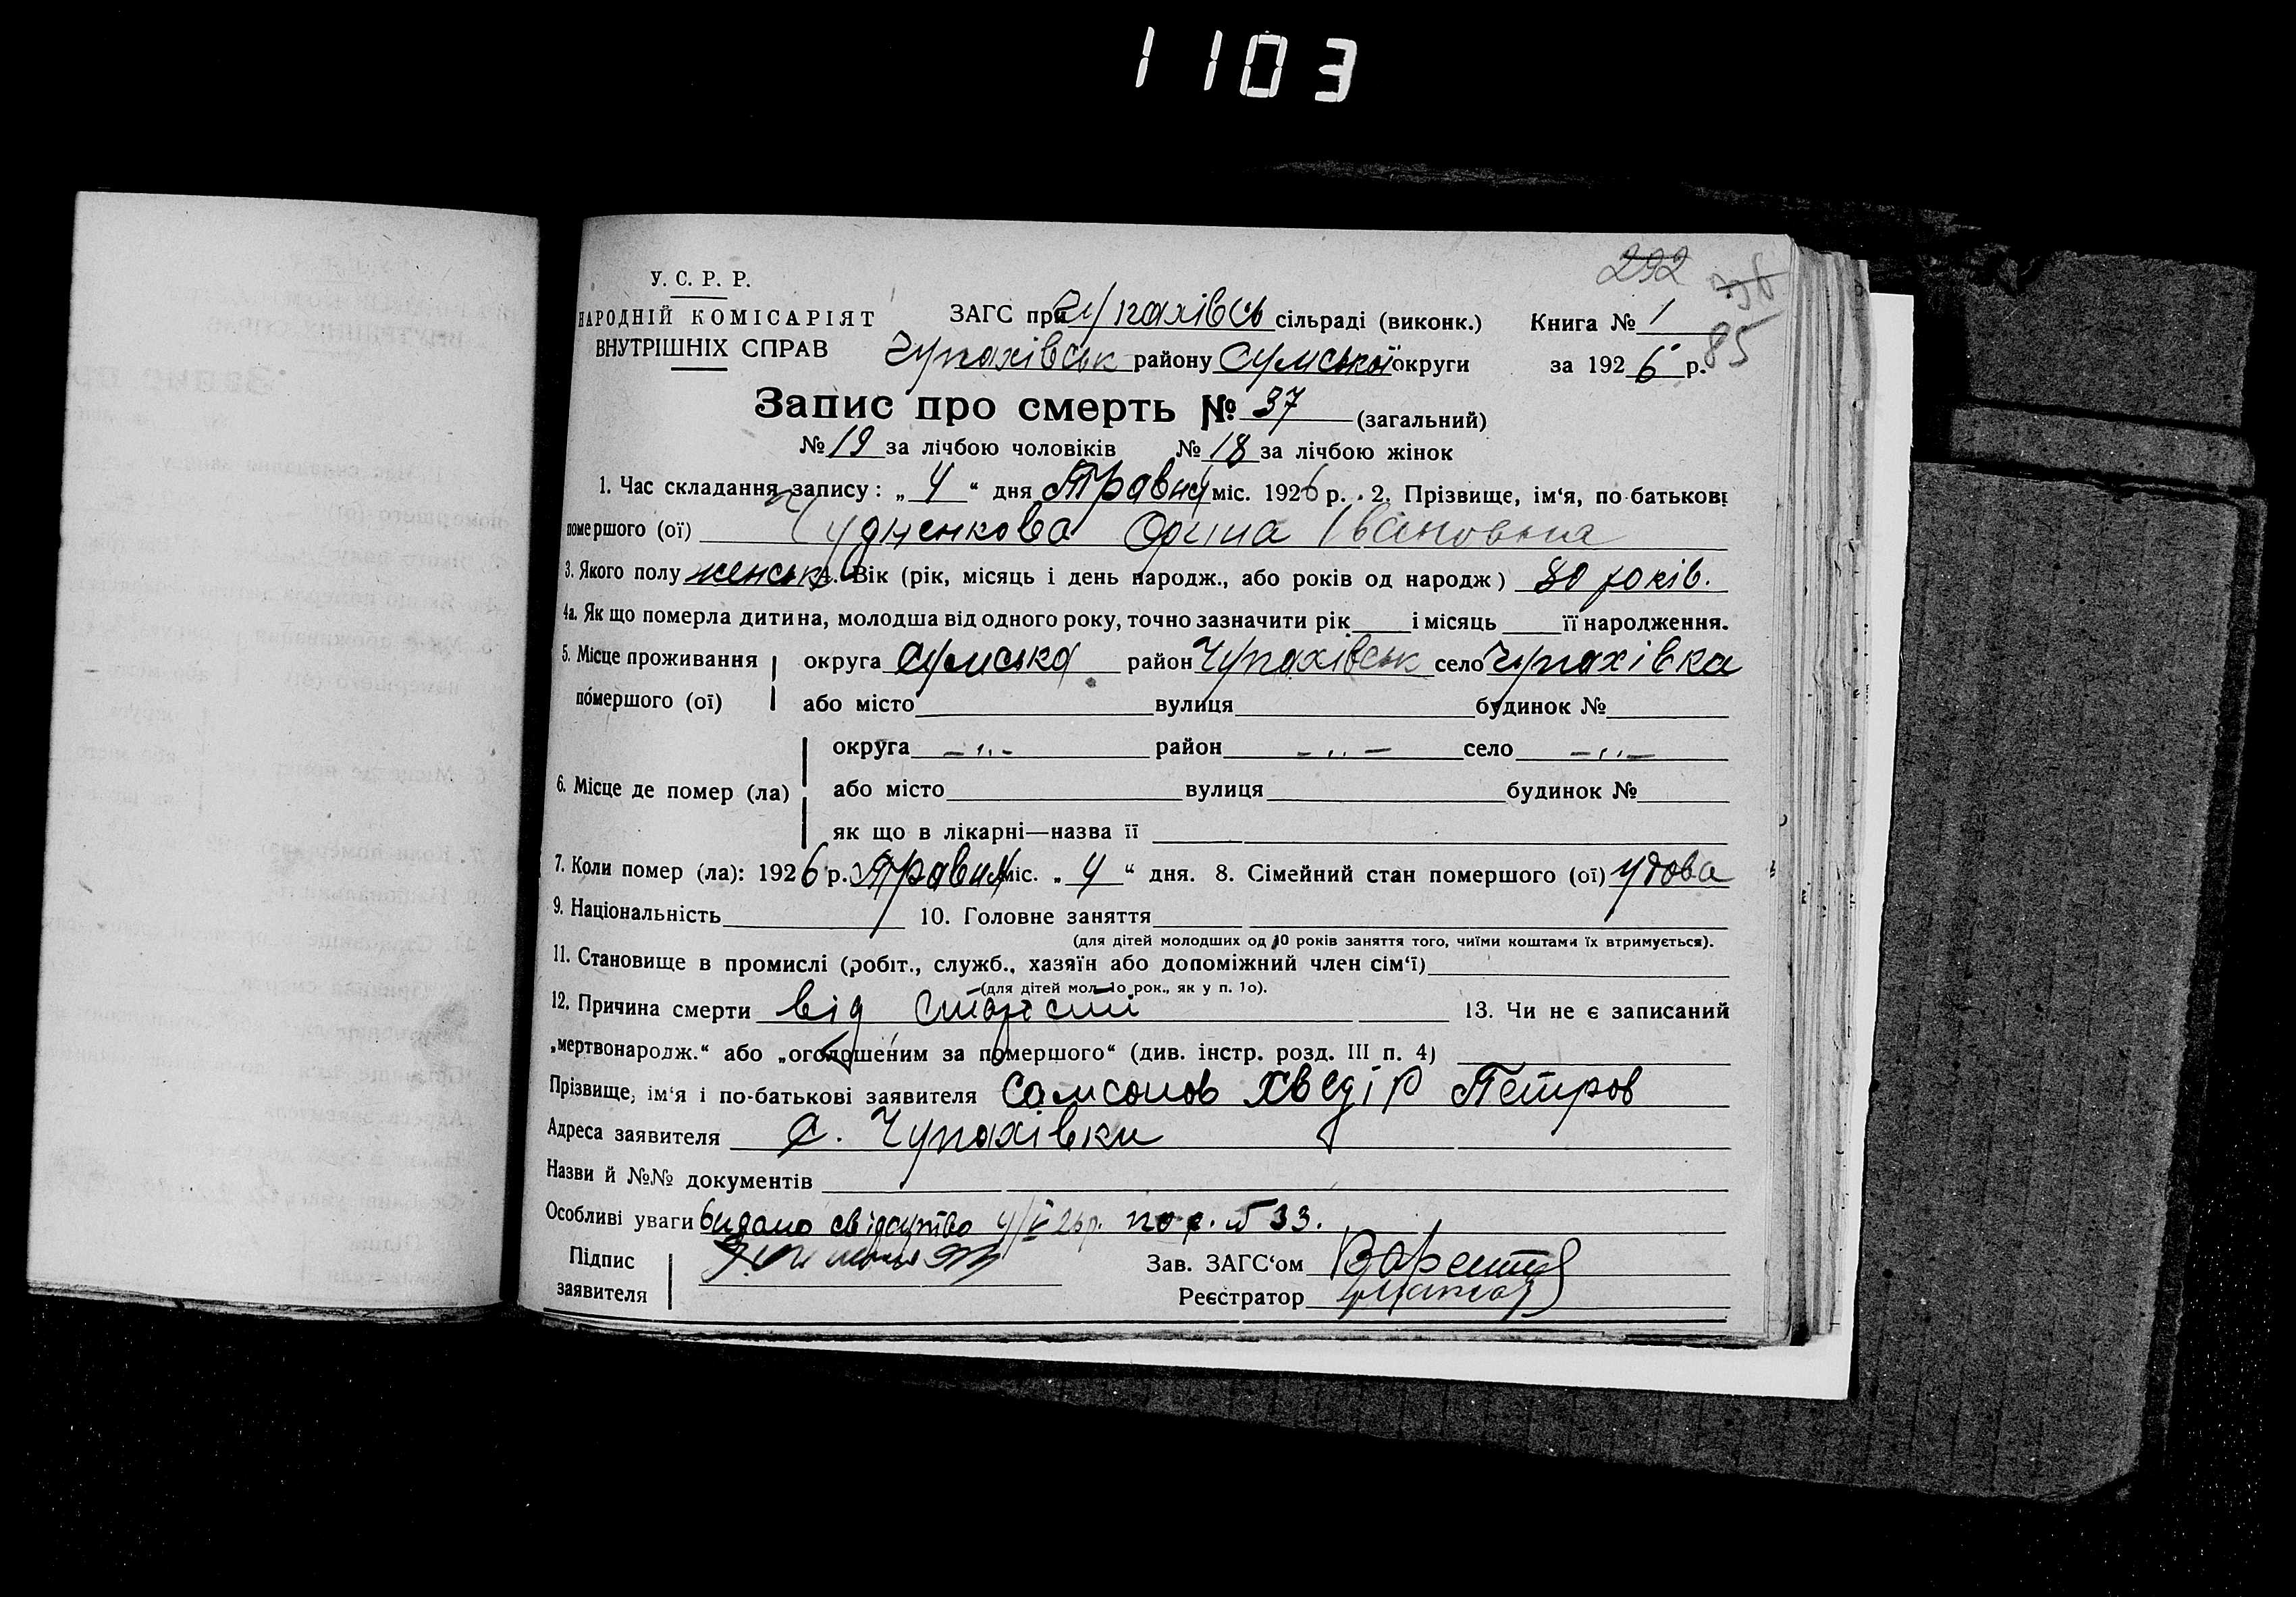 1103
292
У. С. Р. Р.
НАРОДНІЙ КОМІСАРІЯТ
ВНУТРІШНІХ СПРАВ
ЗАГС при Чупахівсь сільраді (виконк.) Книга № 1
85
Чупахівськ району Сумської округи за 1926 р.
Запис про смерть № 37 (загальний)
№ 19 за лічбою чоловіків № 18 за лічбою жінок
1. Час складання запису: „ 4 “ дня Травня міс. 1926 р. 2. Прізвище, ім‘я, по-батькові
помершого (ої) Чудненкова Орина Івановьна
3. Якого полу женськ 4. Вік (рік, місяць і день народж., або років од народж) 80 років.
4а. Як що померла дитина, молодша від одного року, точно зазначити рік і місяць її народження.
5. Місце проживання округа Сумська район Чупахівськ село Чупахівка
помершого (ої) або місто вулиця будинок №
округа —„— район —„— село —„—
6. Місце де помер (ла) або місто вулиця будинок №
як що в лікарні—назва її
7. Коли помер (ла): 1926 р. Травня міс. „ 4 “ дня. 8. Сімейний стан помершого (ої) удова
9. Національність 10. Головне заняття
(для дітей молодших од 10 років заняття того, чиїми коштами їх втримується).
11. Становище в промислі (робіт., служб., хазяїн або допоміжний член сім‘ї)
(для дітей мол. 1о рок., як у п. 1о).
12. Причина смерти від старости 13. Чи не є записаний
„мертвонародж.“ або „оголошеним за помершого“ (див. інстр. розд. III п. 4)
Прізвище, ім‘я і по-батькові заявителя Самсонов Хведір Петров
Адреса заявителя с. Чупахівки
Назви й №№ документів
Особливі уваги Видано свідоцтво 4/V 26 р. по р. № 33.
Підпис
заявителя
Зав. ЗАГС‘ом
Реєстратор